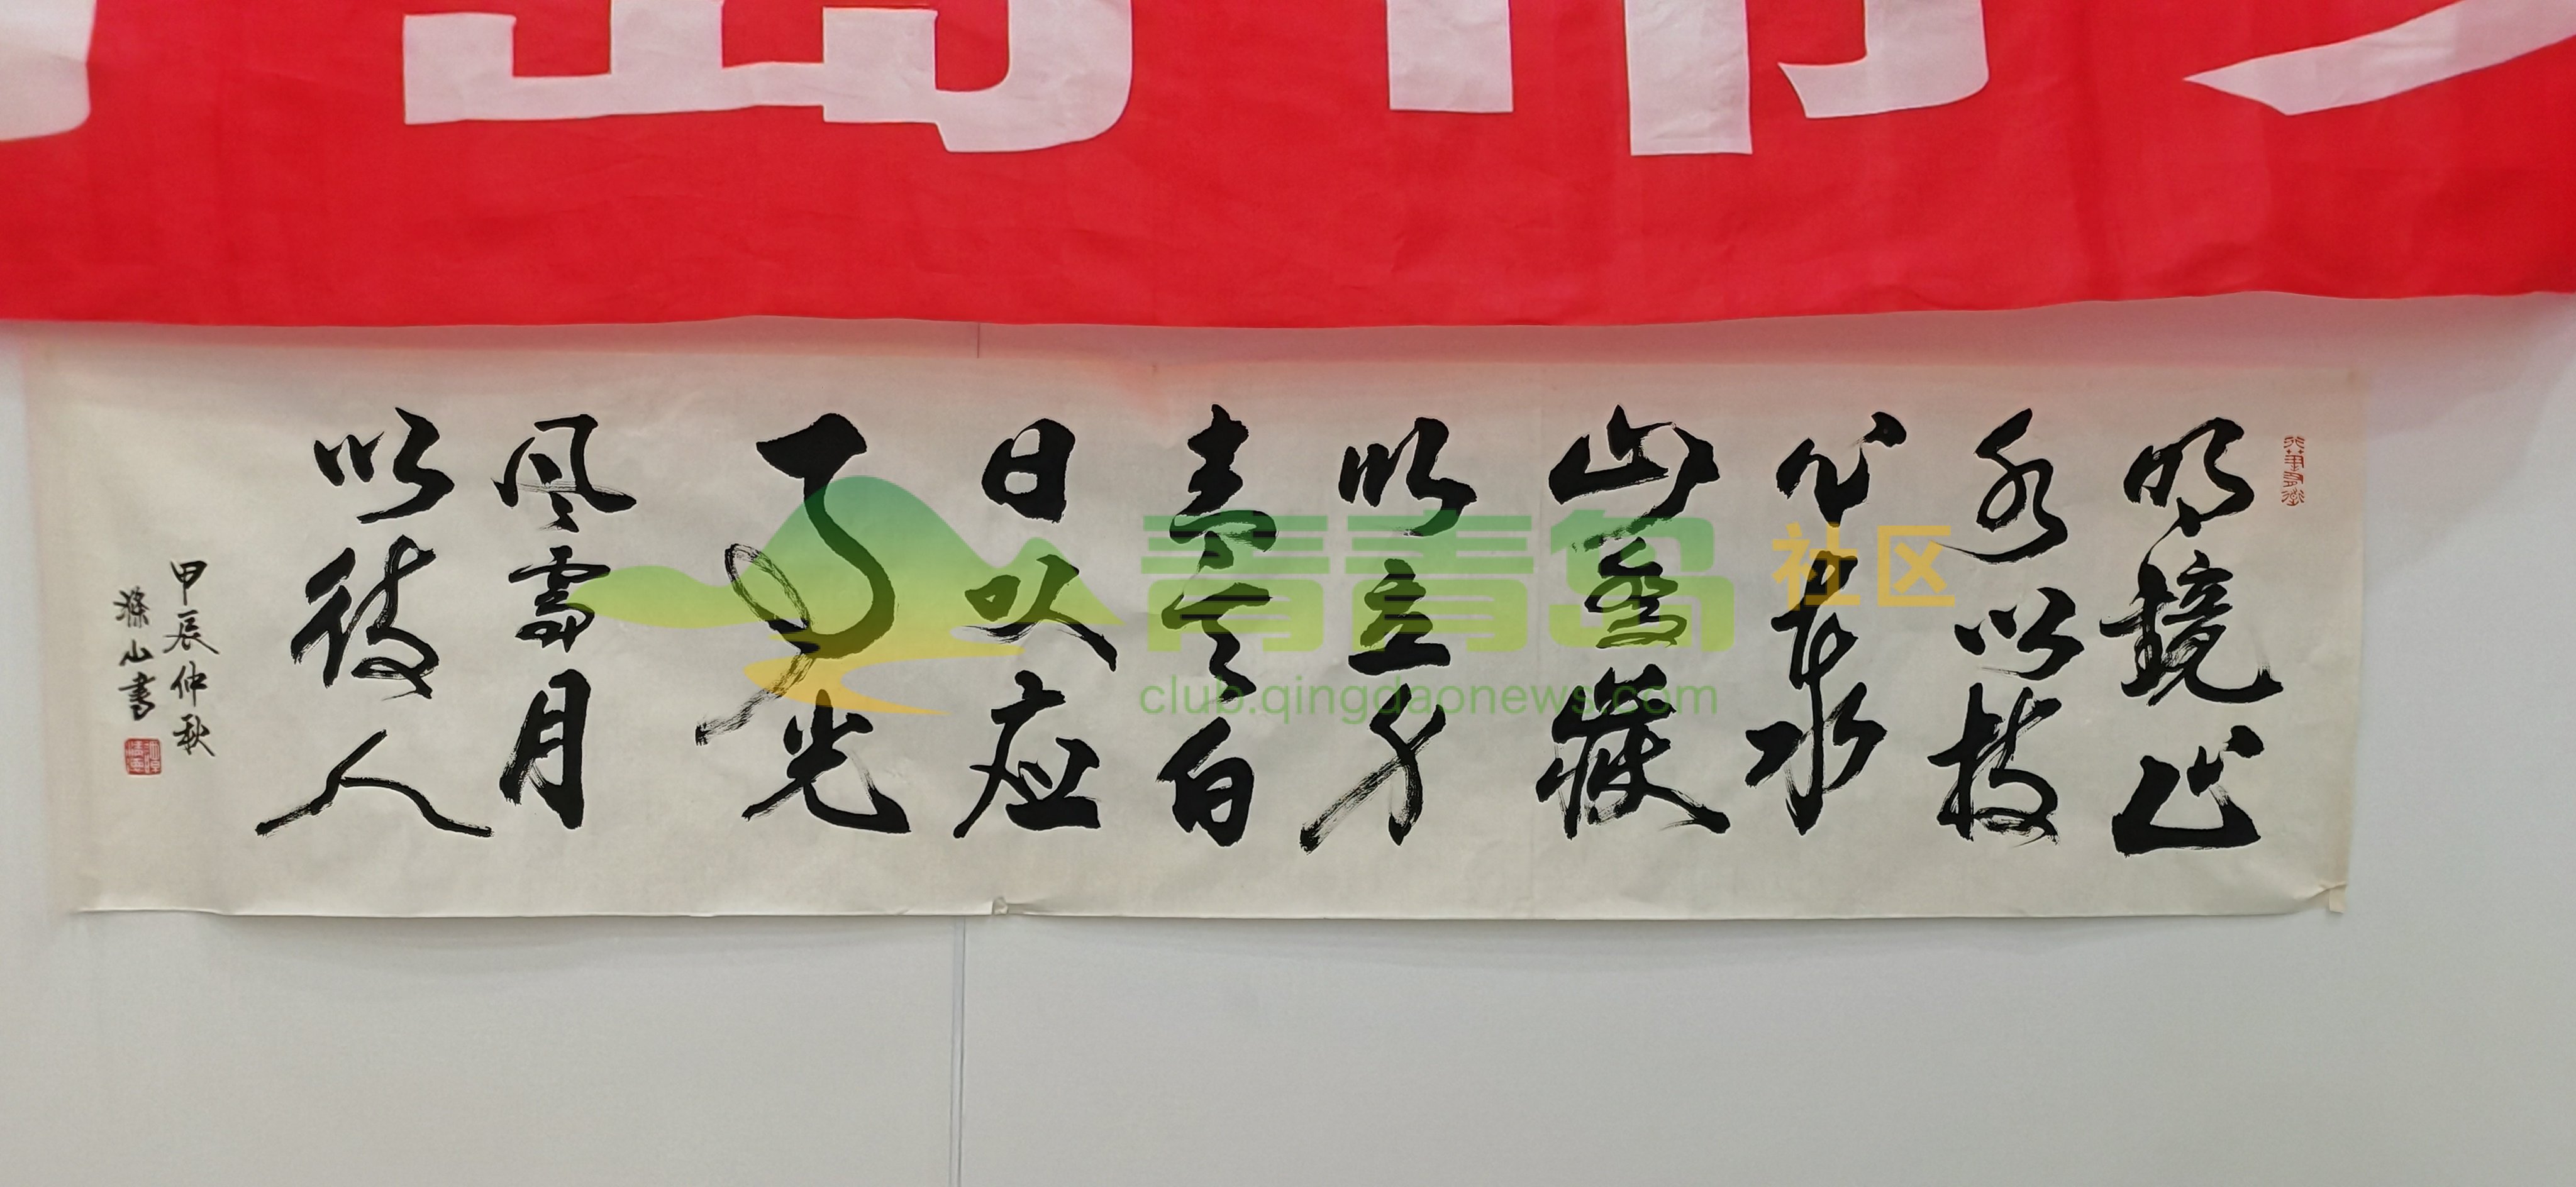 明鏡止
水以持
心泰
山乔嶽
以立身
青天白
日以应
事光
风霁月
以待人
甲辰仲秋
滌山書
青青岛 社区
club.qingdaonews.com